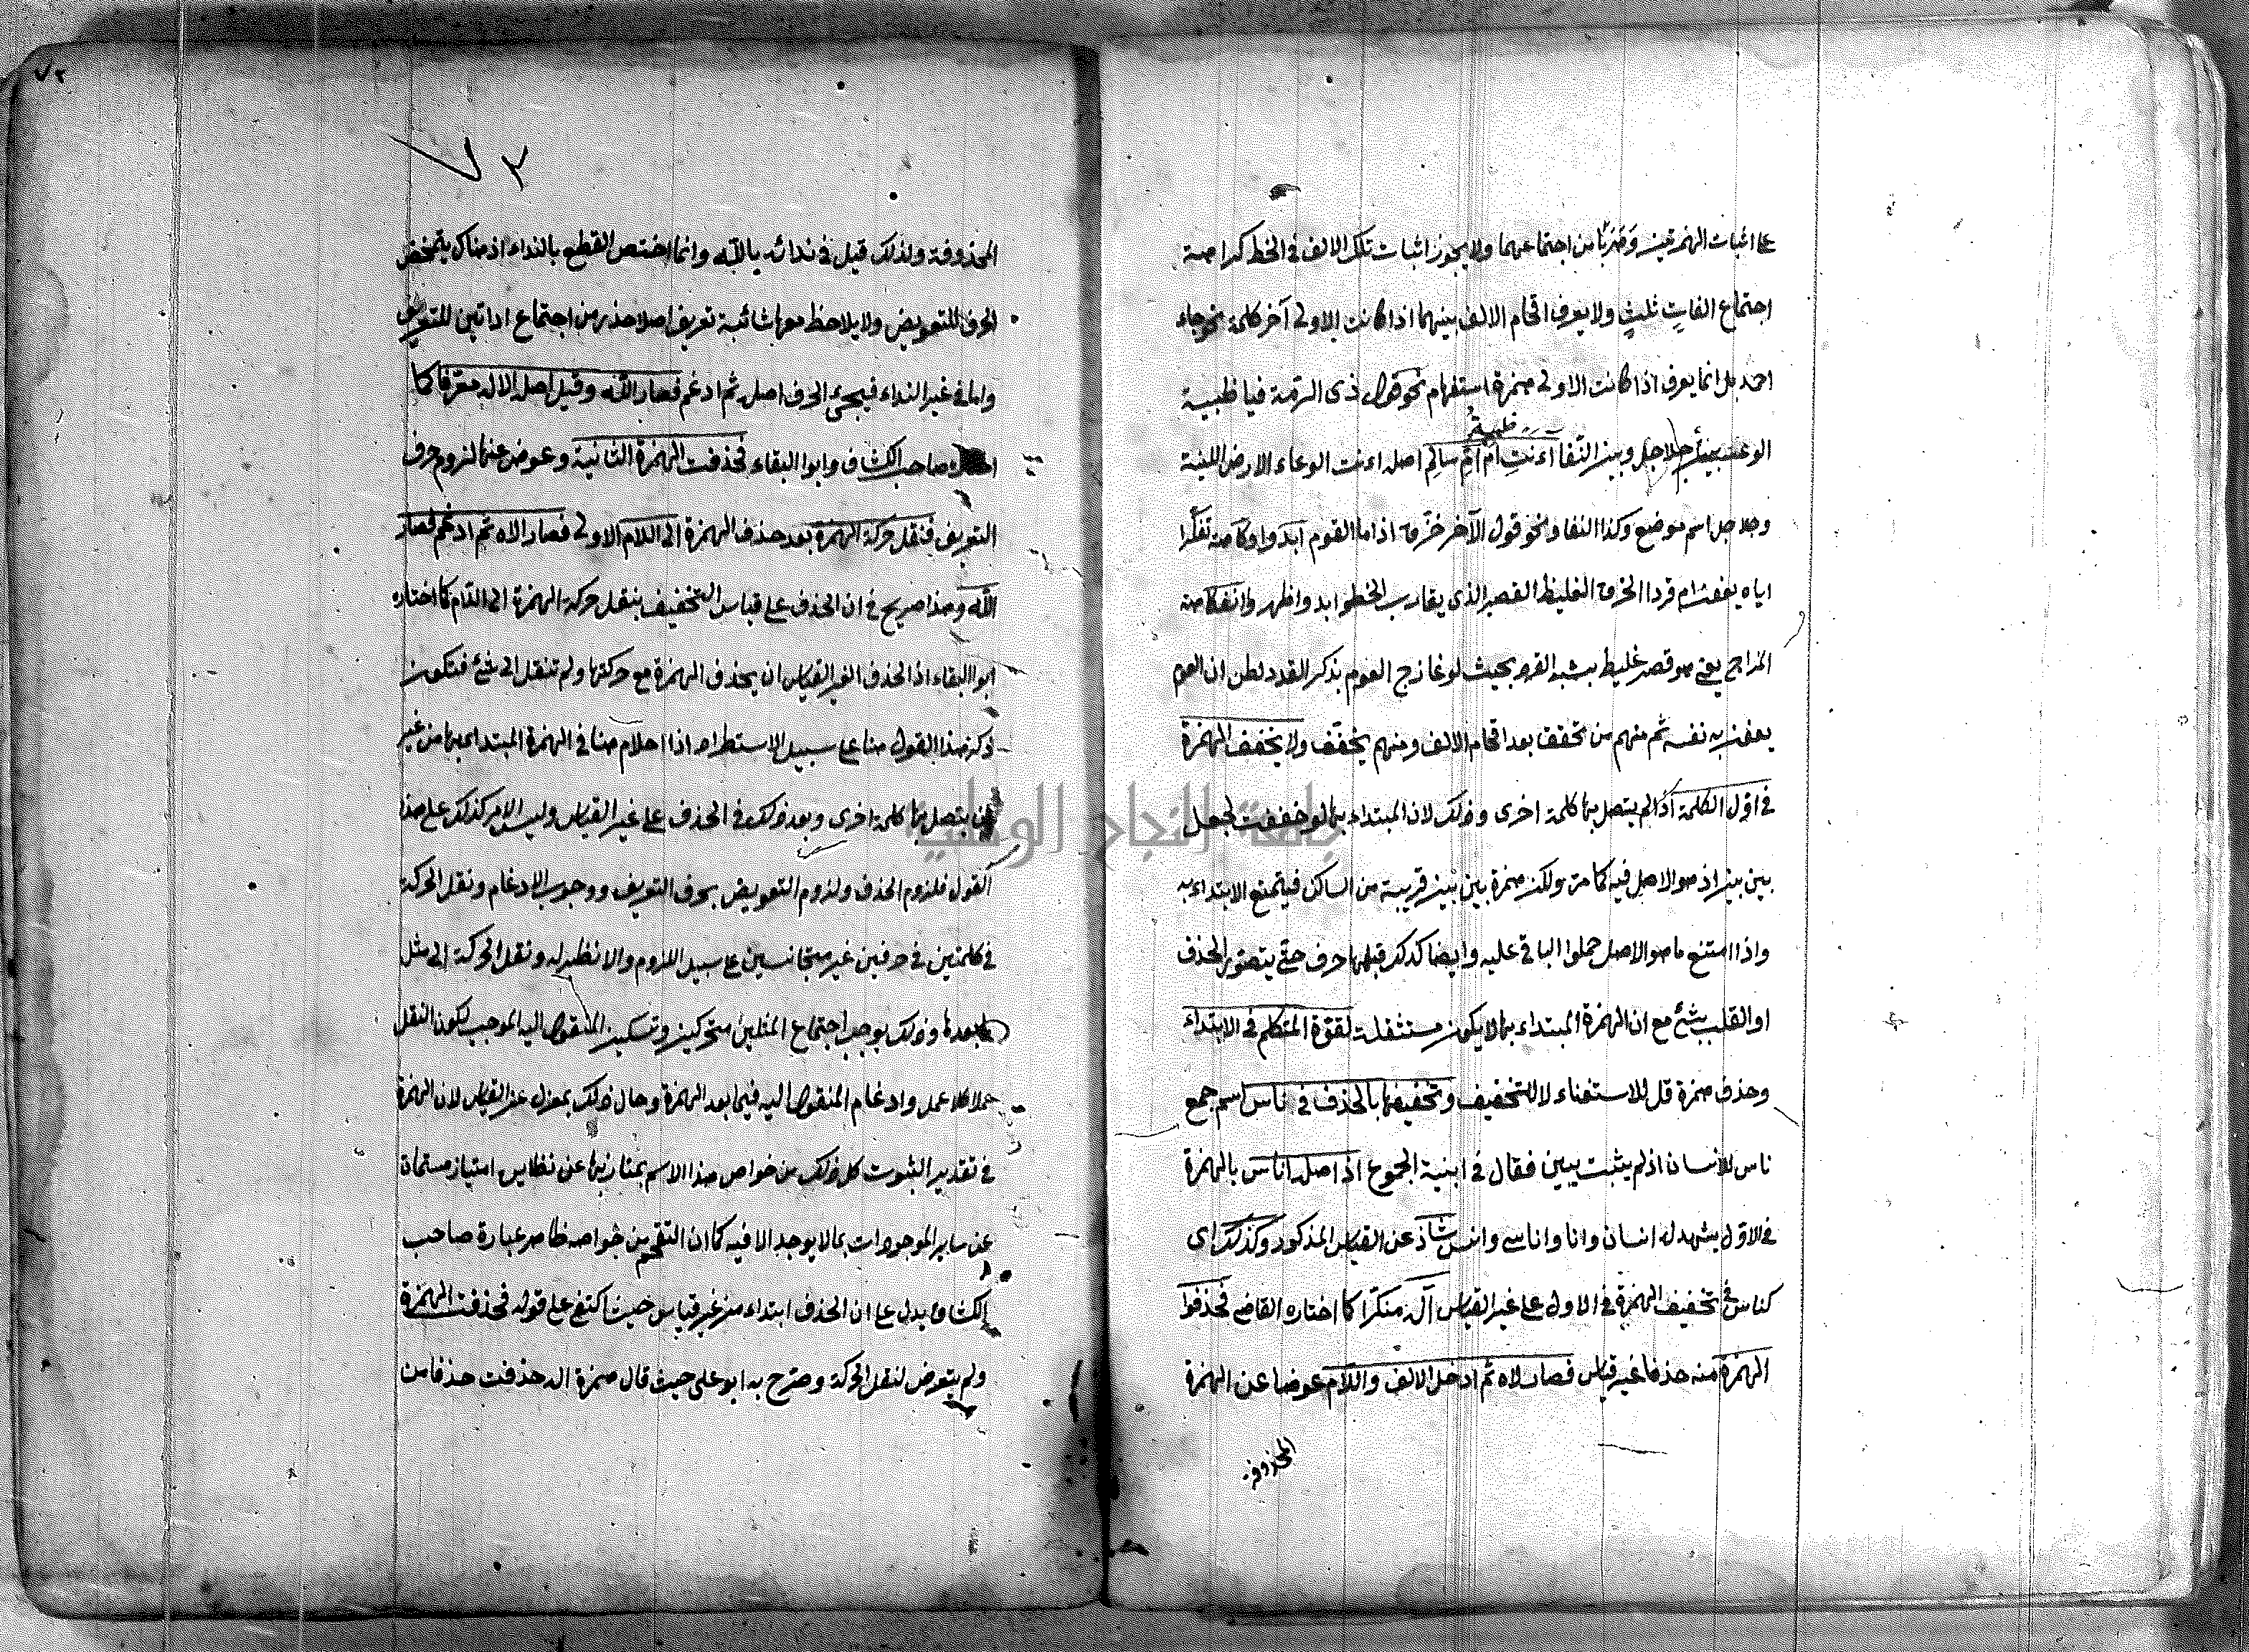 على اثبات الهمزتين وهربا من اجتماعهما ولا يجوز اثبات تلك الالف في الخط كراهة
اجتماع الفات ثلث ولا يعرف اقحام الالف بينهما اذا كانت الاولى آخر كلمة نحو جاء
احد بل انما يعرف اذا كانت الاولى همزة استفهام نحو قول ذى الرمة فيا ظبية
الوعساء بين جلاجل وبين النقا اءنت ام ام سالم اصله اءنت الوعاء الارض اللينة
وجلاجل اسم موضع وكذا النقا ونحو قول الآخر حزق اذا ما القوم ابدوا فكاهة تفكرا
اياه يعنون ام قردا الحزق الغليظ القصير الذى يقارب الخطو ابدوا اظهروا الفكاهة
المزاح يعنى هو قصير غليظ يشبه القرد بحيث لو مازح القوم بذكر القرد لظن ان القوم
يعنون به نفسه ثم منهم من تحقق بعد اقحام الالف ومنهم يخفف ولا يخفف الهمزة
في اول الكلمة اذا لم يتصل بها كلمة اخرى وذلك لان المبتداء بها لو خففت لجعل
بين بين اذ هو الاصل فيه كما مر ولكن همزة بين بين قريبة من الساكن فيمتنع الابتداء به
واذا امتنع ما هو الاصل حملوا الباقى عليه وايضا كذلك قبلها حرف حتى يتصور الحذف
او القلب بشئ مع ان الهمزة المبتداء بها لا يكون مستثقلة لقوة المتكلم في الابتداء
وحذف همزة قل للاستغناء لا للتخفيف وتخفيفها بالحذف في ناس اسم جمع
ناس للانسان اذ لم يثبت يبين فقال في ابنية الجموع اذ اصله اناس بالهمزة
في الاول يشهد له انسان وانا واناسى وانس شاذ عن القياس المذكور وكذلك اى
كناس في تخفيف الهمزة في الاول على غير القياس اله منكرا كما اختاره القاضى فحذفوا
الهمزة منه حذفا غير قياس فصار لاه ثم ادخل الالف واللام عوضا عن الهمزة
المحذوفة
٧٢
٧٣
المحذوفة ولذلك قيل في ندائه يا الله وانما اختص القطع بالنداء اذ هناك يتمحض
الحرف للتعويض ولا يلاحظ معها شائبة تعريف اصلا حذر من اجتماع اداتين للتعريف
واما في غير النداء فيجئ الحرف اصله ثم ادغم فصار الله وقيل اصله الاله معرفا كما
صاحب الكشاف وابوا البقاء فحذفت الهمزة الثانية وعوض عنها لزوم حرف
التعريف فنقل حركة الهمزة بعد حذف الهمزة الى اللام الاولى فصار الاه ثم ادغم فصار
الله وهذا صريح في ان الحذف على قياس التخفيف بنقل حركة الهمزة الى اللام كما اختاره
ابوا البقاء اذ الحذف الغير القياس ان يحذف الهمزة مع حركتها ولم تنقل الى شئ فتكون
ذكر هذا القول هنا على سبيل الاستطراد اذ الكلام هنا في الهمزة المبتداء بها من غير
ان يتصل بها كلمة اخرى وبعد ذلك في الحذف على غير القياس وليس الامر كذلك على هذا
القول فلزوم الحذف ولزوم التعويض بحرف التعريف ووجوب الادغام ونقل الحركة
في كلمتين في حرفين غير متجانسين على سبيل اللزوم والا نظير له ونقل الحركة الى مثل
ما بعدها وذلك يوجب اجتماع المثلين متحركين وتسكين المنقول اليه الموجب لكون النقل
عملا كلا عمل وادغام المنقول اليه فيما بعد الهمزة وحال ذلك بمعزل عن القياس لان الهمزة
في تقدير الثبوت كل ذلك من خواص هذا الاسم يمتاز بها عن نظايره امتياز مسماه
عن ساير الموجودات بما لا يوجد الا فيه كما ان التفخيم من خواصه ظاهر عبارة صاحب
الكشاف يدل على ان الحذف ابتداء من غير قياس حيث اكتفى على قوله فحذفت الهمزة
ولم يتعرض لنقل الحركة وصرح به ابو على حيث قال همزة اله حذفت حذفا من